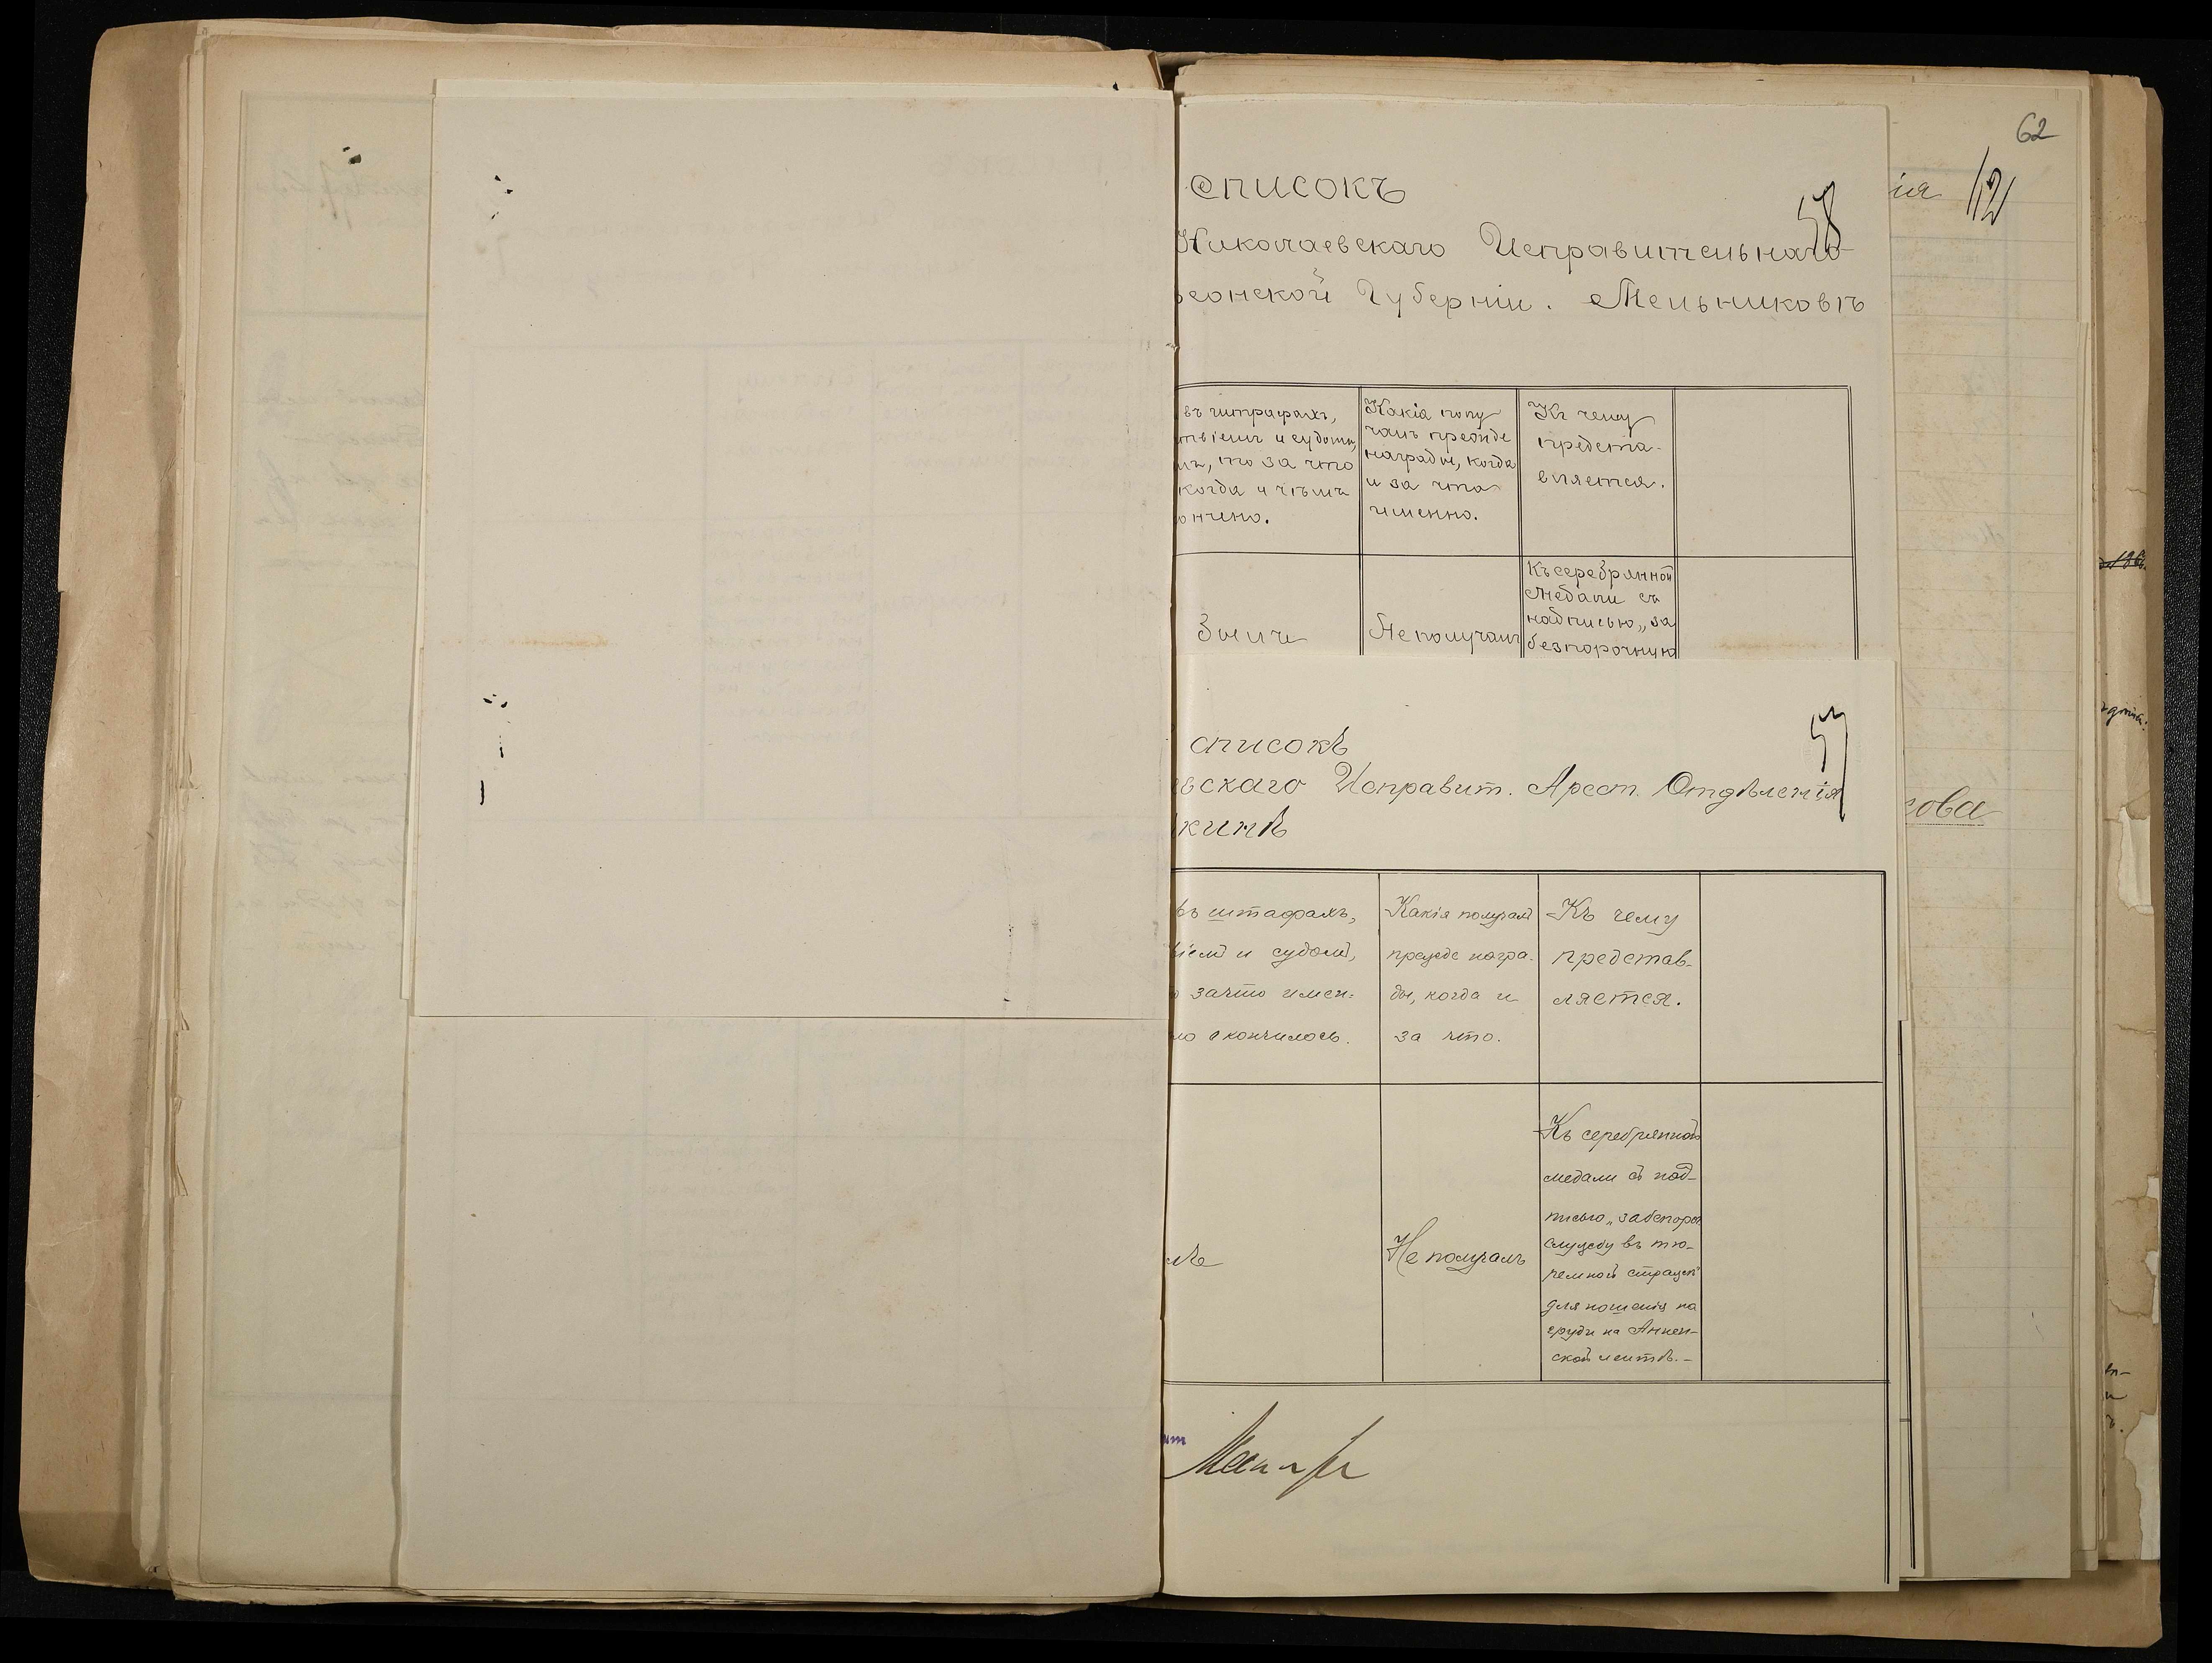 62
списокъ
58
ія 121
Николаевскаго Исправительнаго
сонской Губерніи. Мельниковъ
въ штрафахъ,
ствіемъ и судомъ,
то за что
когда и чѣмъ
ончено.
Какія полу
чалъ прежде
награды, когда
и за что
именно.
Къ чему
предста-
вляется.
Зылъ
Не получалъ
Къ серебрянной
Медали съ
надписью „за
безпорочную
списокъ
57
ьскаго Исправит. Арест. Отдѣленія
кинъ
сова
въ штафахъ,
віемъ и судомъ,
зачто имен-
но окончилось.
Какія получалъ
прежде награ-
ды, когда и
за что.
Къ чему
представ-
ляется.
лъ
Не получалъ
Къ серебрянной
медали съ над-
писью „за безпороч.
службу въ тю-
ремной стражѣ"
для ношенія на
груди на Аннен-
ской лентѣ.-